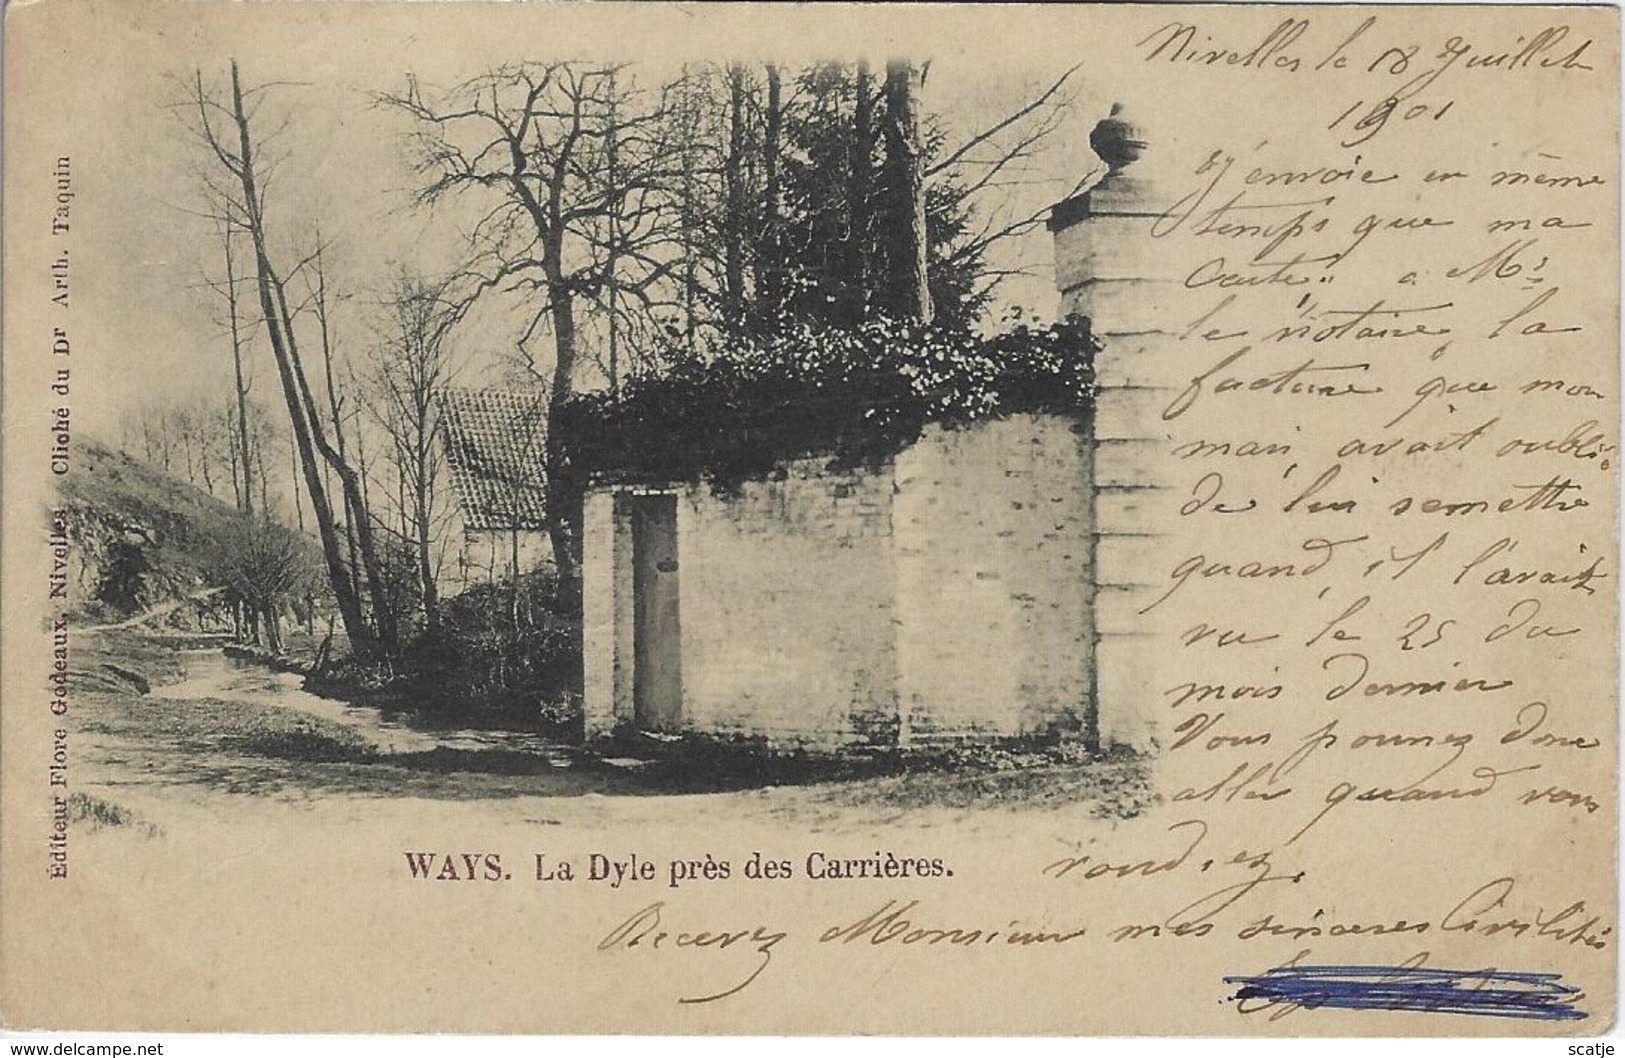 Nivelles le 18 Juillet
1901
J'envoie en même
temps que ma
Carte a Mr
le notaire, la
facture que mon
mari avait oublié
de lui remettre
quand il l'avait
vu le 25 du
mois dernier
Vous pouvez donc
aller quand vous
voudrez.
Recevez Monsieur mes sincères Civilités
WAYS. La Dyle près des Carrières.
Éditeur Flore Godeaux, Nivelles Cliché du Dr Arth. Taquin
© delcampe.net
scatje